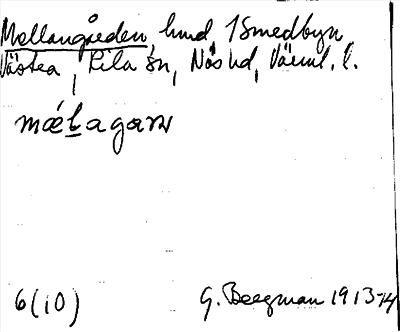 Mellangården, hmd, 1 Smedbyn
Västra, Eila sn, Näs hd, Värml. l.
mæɫagaɳ
6(10) G. Bergman 1913-14